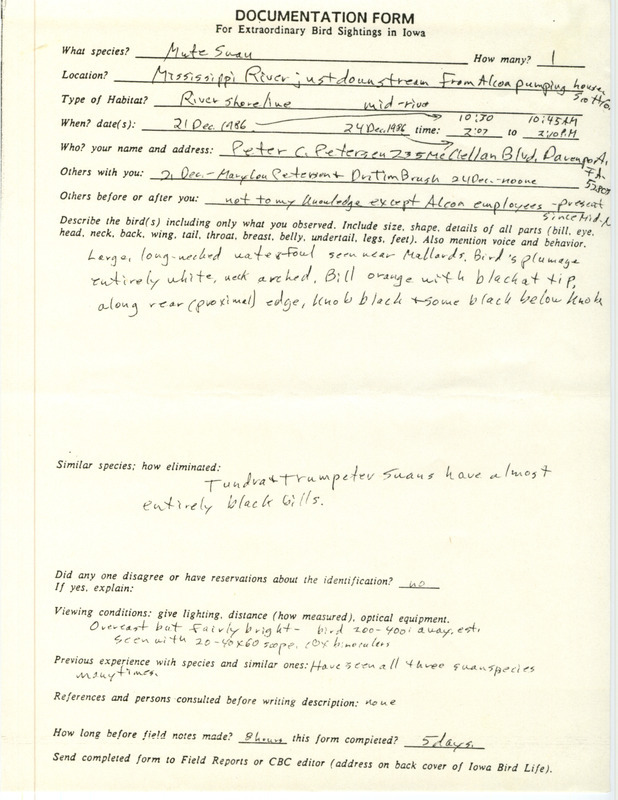 DOCUMENTATION FORM
For Extraordinary Bird Sightings in Iowa
What species? Mute Swan How many? 1
Location? Mississippi River just downstream from Alcoa pumping house
Scott Co.
Type of Habitat? River shoreline mid-river
10:30 10:45 AM
When? date(s): 21 Dec. 1986 24 Dec. 1986 time: 2:07 to 2:10 PM
Who? your name and address: Peter C. Petersen 235 McClellan Blvd, Davenport,
IA.
52803
Others with you: 21 Dec. - Mary Lou Petersen + Dr Tim Brush 24 Dec. - no one
Others before or after you: not to my knowledge except Alcoa employees - present
since Mid.
Describe the bird(s) including only what you observed. Include size, shape, details of all parts (bill, eye,
head, neck, back, wing, tail, throat, breast, belly, undertail, legs, feet). Also mention voice and behavior.
Large, long-necked waterfowl seen near Mallards. Bird's plumage
entirely white, neck arched. Bill orange with black at tip,
along rear (proximal) edge, knob black + some black below knob
Similar species; how eliminated:
Tundra + Trumpeter swans have almost
entirely black bills.
Did any one disagree or have reservations about the identification? no
If yes, explain:
Viewing conditions: give lighting, distance (how measured), optical equipment.
Overcast but fairly bright - bird 200-400' away, est.
seen with 20-40x60 scope, 10x binoculars
Previous experience with species and similar ones: Have seen all three swan species
many times.
References and persons consulted before writing description: none
How long before field notes made? 8 hours this form completed? 5 days.
Send completed form to Field Reports or CBC editor (address on back cover of Iowa Bird Life).